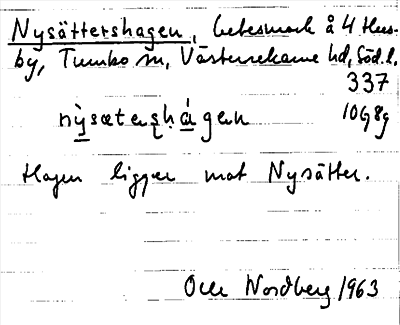 Nysättershagen, betesmark å 4 Hus-
by, Tumbo sn, Västerrekarne hd, Söd. l.
337
nỳsæteʂhágen 10G8g
Hagen ligger mot Nysätter.
Olle Nordberg 1963